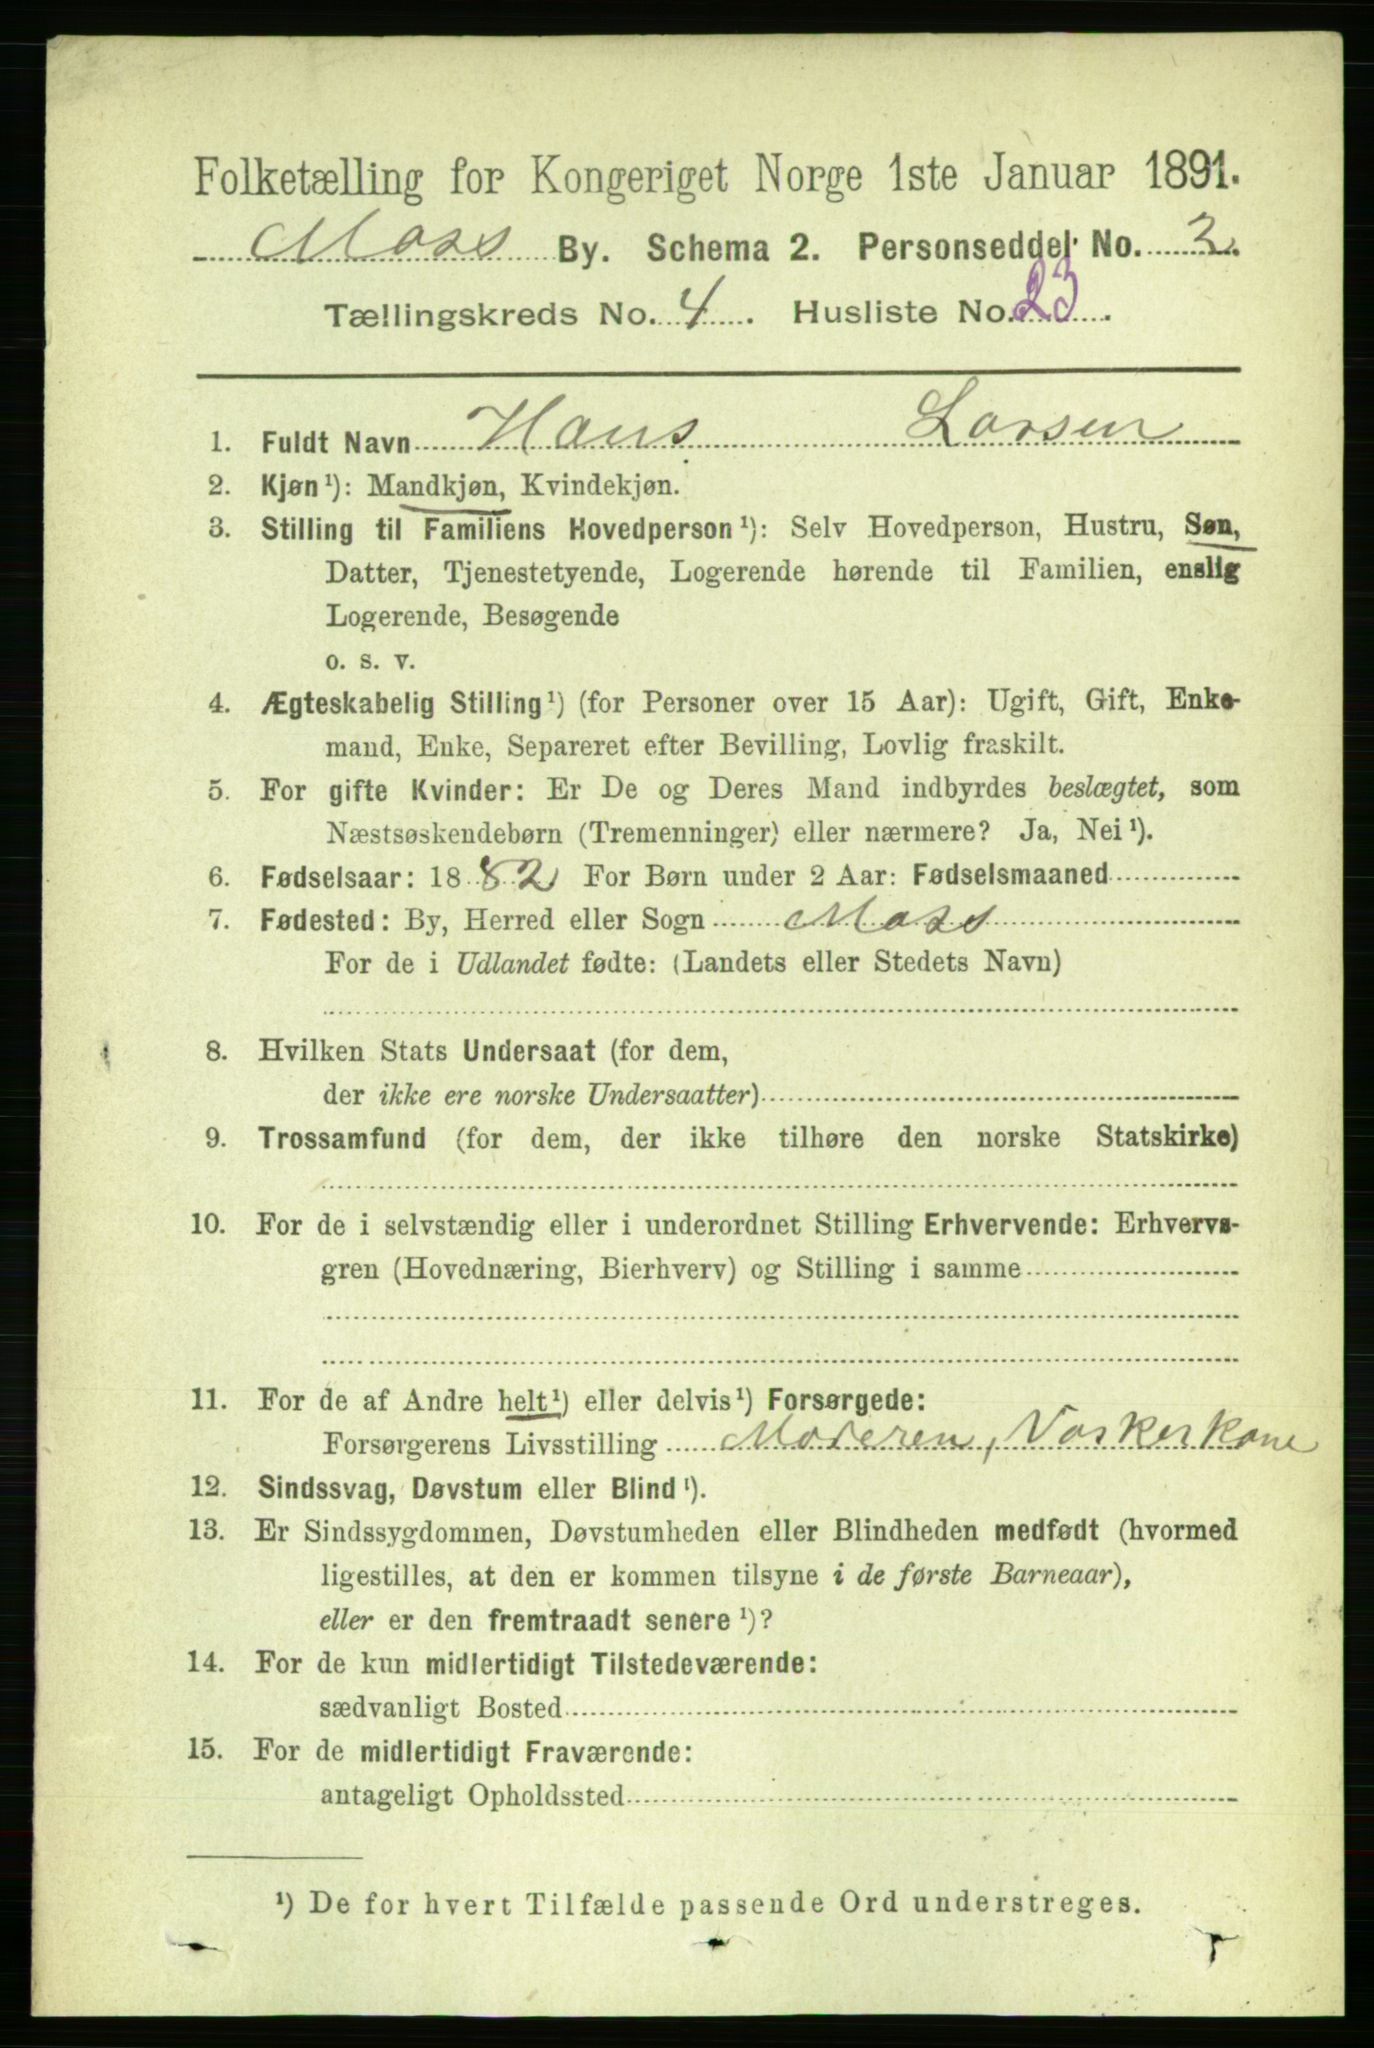 Folketælling for Kongeriget Norge 1ste Januar 1891.
Moss By. Schema 2. Personseddel No. 3.
Tællingskreds No. 4. Husliste No. 23.
1. Fuldt Navn Hans Larsen
2. Kjøn¹): Mandkjøn, Kvindekjøn.
3. Stilling til Familiens Hovedperson¹): Selv Hovedperson, Hustru, Søn,
Datter, Tjenestetyende, Logerende hørende til Familien, enslig
Logerende, Besøgende
o. s. v.
4. Ægteskabelig Stilling¹) (for Personer over 15 Aar): Ugift, Gift, Enke-
mand, Enke, Separeret efter Bevilling, Lovlig fraskilt.
5. For gifte Kvinder: Er De og Deres Mand indbyrdes beslægtet, som
Næstsøskendebørn (Tremenninger) eller nærmere? Ja, Nei¹).
6. Fødselsaar: 1882 For Børn under 2 Aar: Fødselsmaaned
7. Fødested: By, Herred eller Sogn Moss
For de i Udlandet fødte: (Landets eller Stedets Navn)
8. Hvilken Stats Undersaat (for dem,
der ikke ere norske Undersaatter)
9. Trossamfund (for dem, der ikke tilhøre den norske Statskirke)
10. For de i selvstændig eller i underordnet Stilling Erhvervende: Erhvervs-
gren (Hovednæring, Bierhverv) og Stilling i samme
11. For de af Andre helt¹) eller delvis¹) Forsørgede:
Forsørgerens Livsstilling Moderen, Vaskerkone
12. Sindssvag, Døvstum eller Blind¹).
13. Er Sindssygdommen, Døvstumheden eller Blindheden medfødt (hvormed
ligestilles, at den er kommen tilsyne i de første Barneaar),
eller er den fremtraadt senere¹)?
14. For de kun midlertidigt Tilstedeværende:
sædvanligt Bosted
15. For de midlertidigt Fraværende:
antageligt Opholdssted
¹) De for hvert Tilfælde passende Ord understreges.